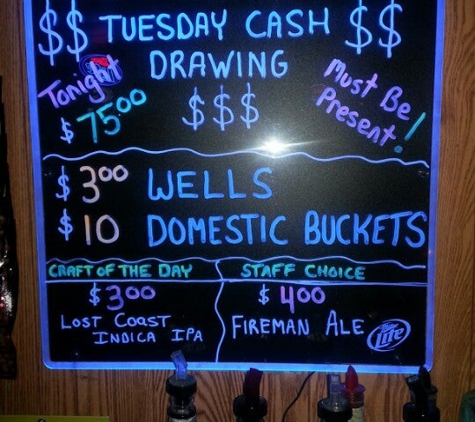 $$ TUESDAY CASH $$
DRAWING
Tonight
$75.00
$$$
Must Be
Present!
$3.00 WELLS
$10 DOMESTIC BUCKETS
CRAFT OF THE DAY
$3.00
LOST COAST
INDICA IPA
STAFF CHOICE
$4.00
FIREMAN ALE
Lite